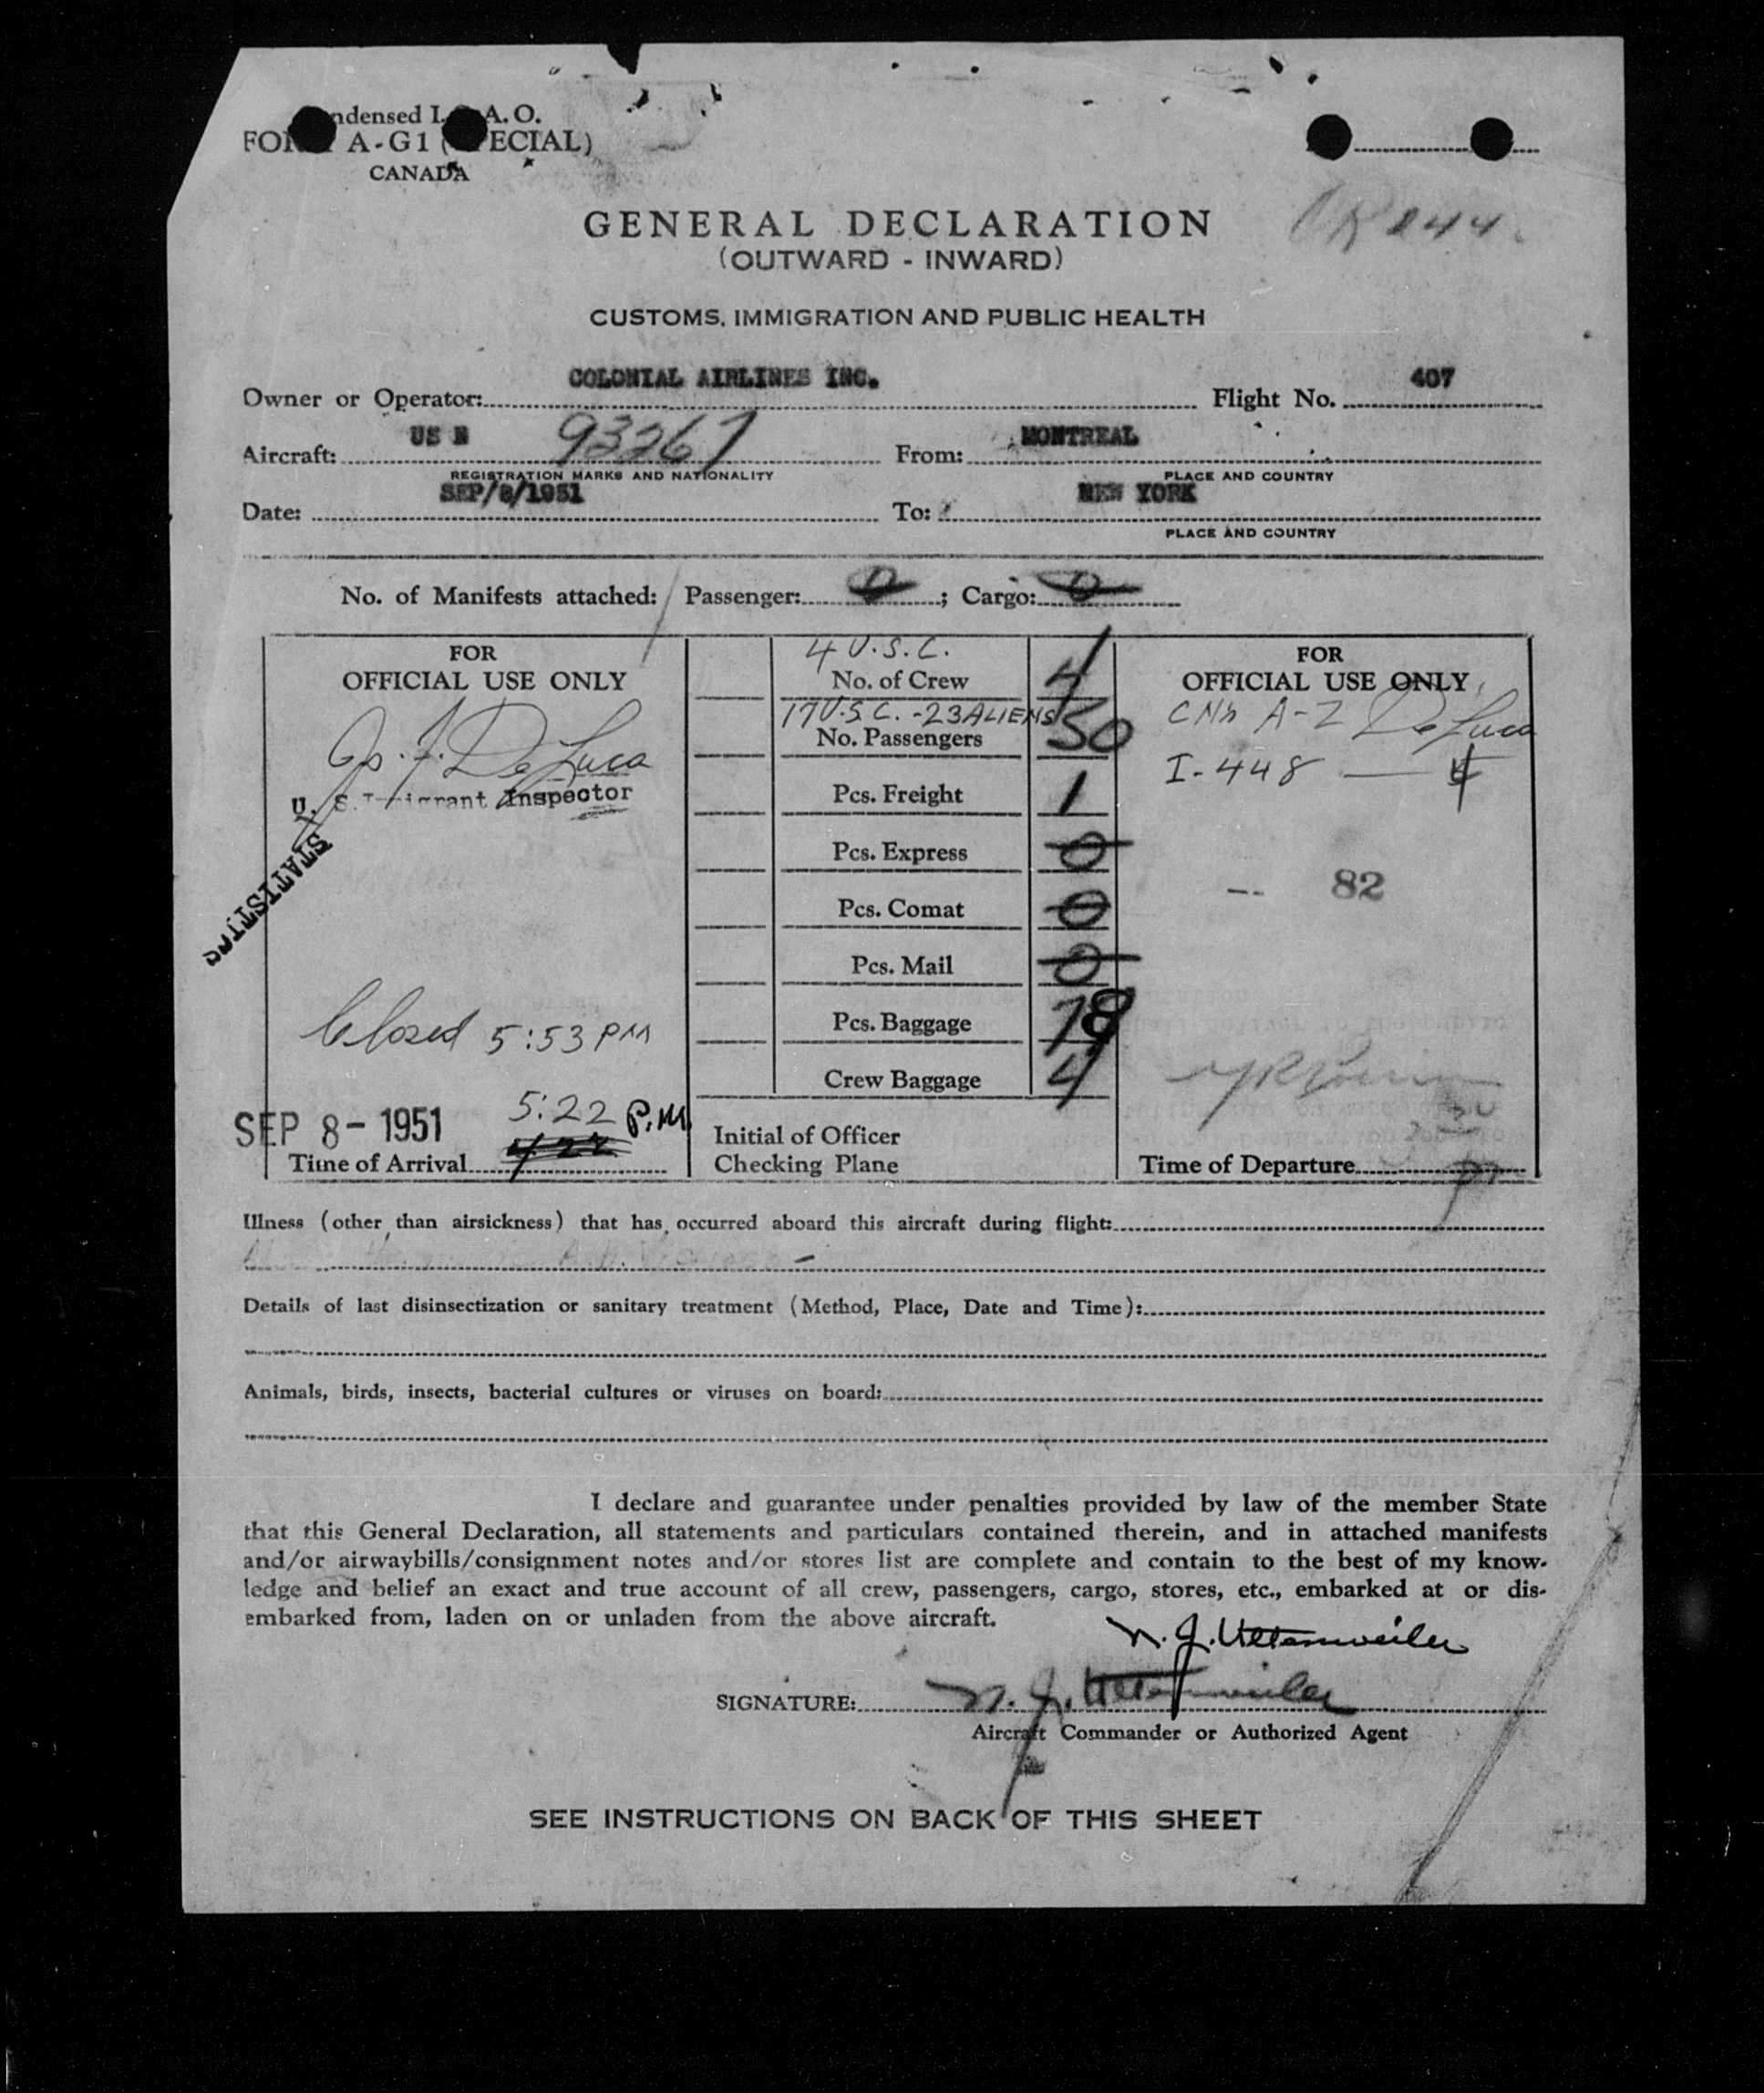 ndensed I. A. O.
FOR A-G1 ( ECIAL)
CANADA
GENERAL DECLARATION
(OUTWARD - INWARD)
CUSTOMS, IMMIGRATION AND PUBLIC HEALTH
Owner or Operator: COLONIAL AIRLINES INC. Flight No. 407
Aircraft: US N 93267 From: MONTREAL
REGISTRATION MARKS AND NATIONALITY PLACE AND COUNTRY
Date: SEP/8/1951 To: NEW YORK
PLACE AND COUNTRY
No. of Manifests attached: Passenger: 0; Cargo: 0
FOR
OFFICIAL USE ONLY
De Luca
U. S. Immigrant Inspector
STATISTICS
Closed 5:53 PM
SEP 8- 1951 5:22 P.M.
422
Time of Arrival
4 U.S.C.
No. of Crew 4
17 U.S.C. - 23 ALIENS
No. Passengers 50
Pcs. Freight 1
Pcs. Express 0
Pcs. Comat 0
Pcs. Mail 0
Pcs. Baggage 78
Crew Baggage 4
Initial of Officer
Checking Plane
FOR
OFFICIAL USE ONLY
A-2 De Luca
I-448 —
-- 82
Time of Departure
Illness (other than airsickness) that has occurred aboard this aircraft during flight:
Details of last disinsectization or sanitary treatment (Method, Place, Date and Time):
Animals, birds, insects, bacterial cultures or viruses on board:
I declare and guarantee under penalties provided by law of the member State
that this General Declaration, all statements and particulars contained therein, and in attached manifests
and/or airwaybills/consignment notes and/or stores list are complete and contain to the best of my know-
ledge and belief an exact and true account of all crew, passengers, cargo, stores, etc., embarked at or dis-
embarked from, laden on or unladen from the above aircraft.
N. J. Uttenweiler
SIGNATURE: N. J. Uttenweiler
Aircraft Commander or Authorized Agent
SEE INSTRUCTIONS ON BACK OF THIS SHEET